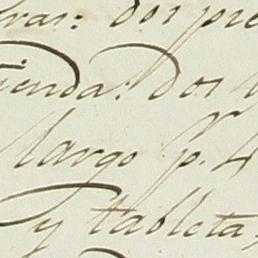 dos pre
tienda: Dos
largo p. 4
y tableta,